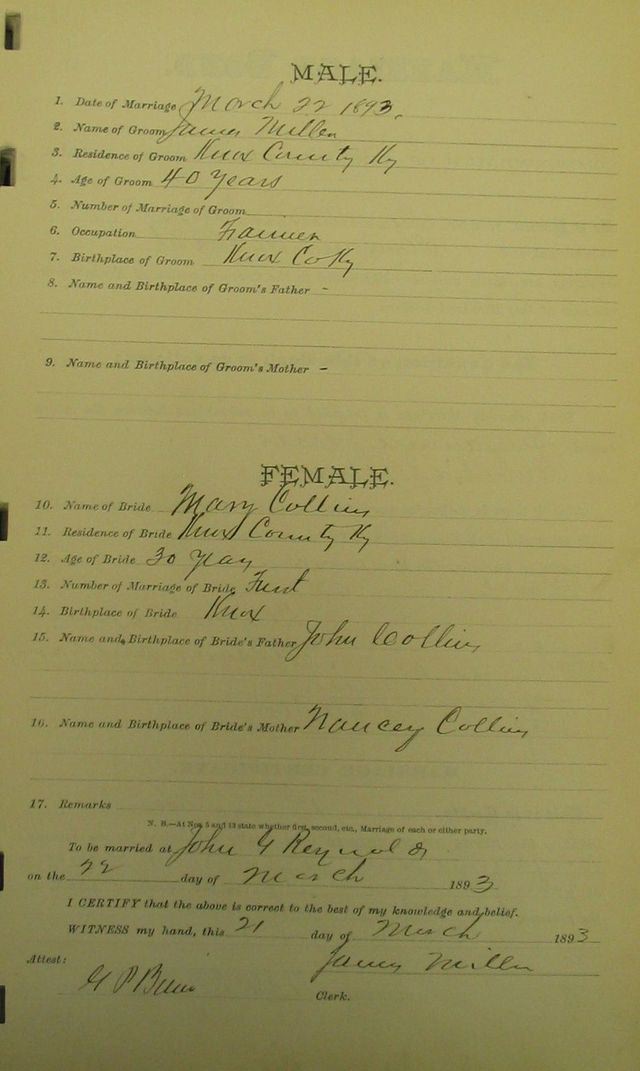 MALE.
1. Date of Marriage March 22 1893.
2. Name of Groom James Miller
3. Residence of Groom Knox County Ky
4. Age of Groom 40 Years
5. Number of Marriage of Groom
6. Occupation Farmer
7. Birthplace of Groom Knox Co Ky
8. Name and Birthplace of Groom's Father -
9. Name and Birthplace of Groom's Mother -
FEMALE.
10. Name of Bride Mary Collins
11. Residence of Bride Knox County Ky
12. Age of Bride 30 Years
13. Number of Marriage of Bride First
14. Birthplace of Bride Knox
15. Name and Birthplace of Bride's Father John Collins
16. Name and Birthplace of Bride's Mother Nancey Collins
17. Remarks
N. B.—At Nos 5 and 13 state whether first, second, etc., Marriage of each or either party.
To be married at John G Reynolds
on the 22 day of March 1893
I CERTIFY that the above is correct to the best of my knowledge and belief.
WITNESS my hand, this 21 day of March 1893
Attest: James Miller
G P Clerk.